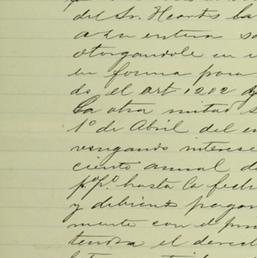 del Sr. Heartt ba
a su entera sa
otorgandole en e
en forma para
do el art 1202 d
La otra mitad s
1º de Abril del e
vengando interese
ciento anual de
pº hasta la fech
y debiendo pagar
mente con el pri
tendra el derec